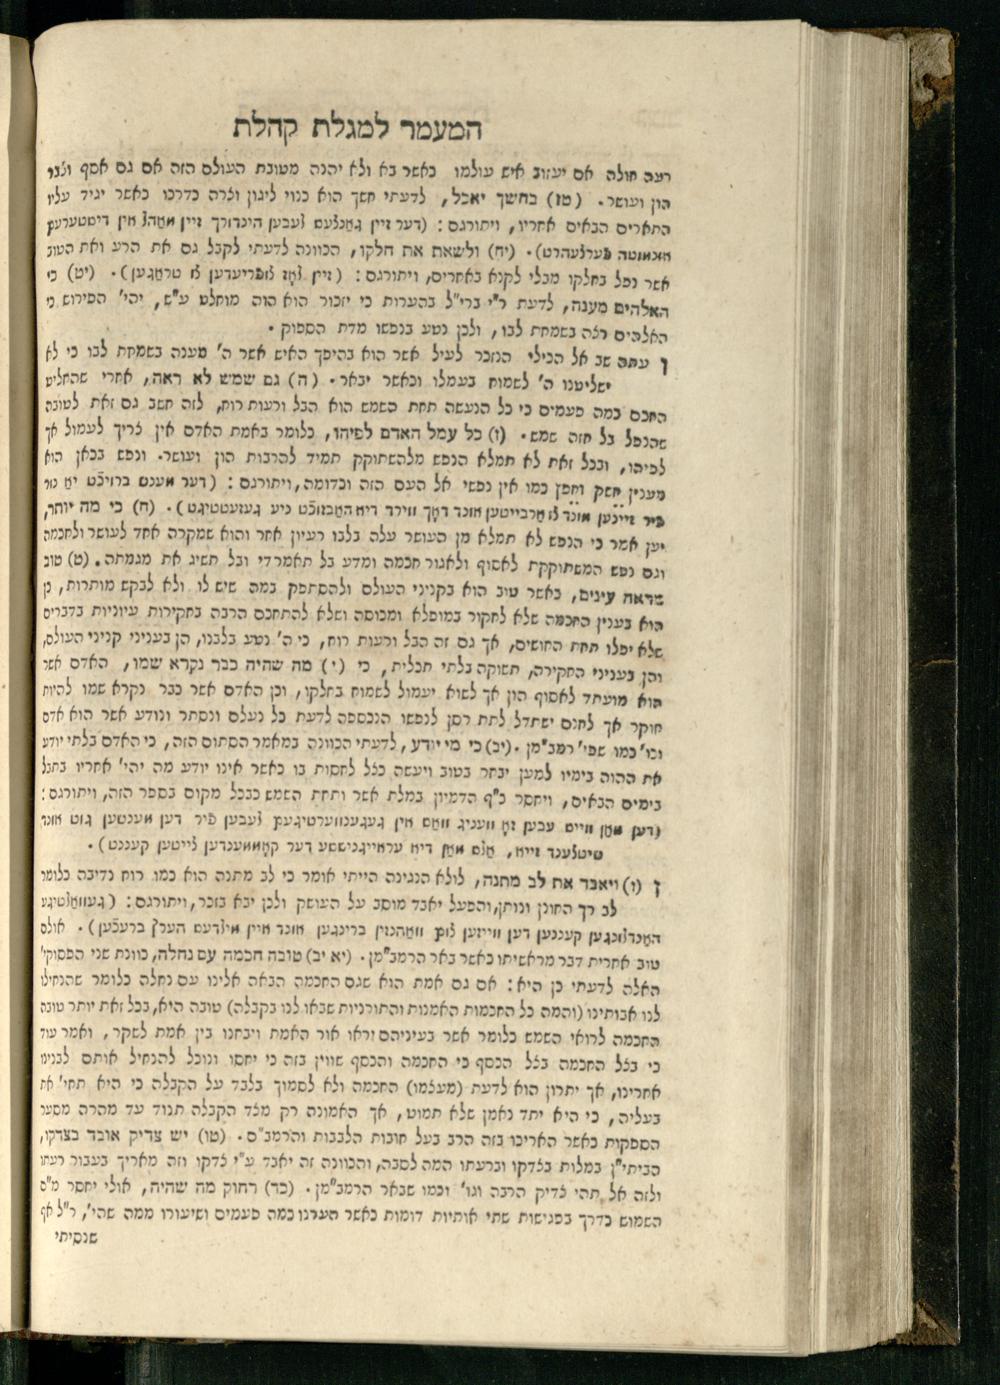 המעמר למגלת קהלת
רעה חולה אם יעזוב איש עולמו כאשר בא ולא יהנה מטובת העולם הזה אם גם אסף וצבר
הון ועושר. (טז) בחשך יאכל, לדעתי חשך הוא כנוי ליגון וצרה כדרכו כאשר יגיד עליו
התארים הבאים אחריו, ויתורגם: (דער זיין גאנצעס לעבען הינדורך זיין מאהל אין דיסטערעם
פערצעהרט). (יח) ולשאת את חלקו, הכוונה לדעתי לקבל גם את הרע ואת הטוב
אשר נפל בחלקו מבלי לקנא באחרים, ויתורגם: (זיין לאז צופריעדען צו טראגען). (יט) כי
האלהים מענה, לדעת ר״י ברי״ל בהערות כי יזכור הוא הוה מוחלט ע״ש, יהי׳ הפירוש כי
האלהים רצה בשמחת לבו, ולכן נטע בנפשו מדת הספוק.
ו עתה שב אל הכילי הנזכר לעיל אשר הוא בהיפך האיש אשר ה׳ מענה בשמחת לבו כי לא
ישליטנו ה׳ לשמוח בעמלו וכאשר יבאר. (ה) גם שמש לא ראה, אחרי שהחליט
החכם כמה פעמים כי כל הנעשה תחת השמש הוא הבל ורעות רוח, לזה חשב גם זאת לטובה
שהנפל בל חזה שמש. (ז) כל עמל האדם לפיהו, כלומר באמת האדם אין צריך לעמול אך
לפיהו, ובכל זאת לא תמלא הנפש מלהשתוקק תמיד להרבות הון ועושר. ונפש בכאן הוא
מענין חשק וחפץ כמו אין נפשי אל העם הזה וכדומה, ויתורגם: (דער מענש ברויכט יא נור
פיר זיינען מונד צו ארבייטען אונד דאך ווירד דיא האבזוכט ניע געזעטטיגט). (ח) כי מה יותר,
יען אמר כי הנפש לא תמלא מן העושר עלה בלבו רעיון אחר והוא שמקרה אחד לעושר ולחכמה
וגם נפש המשתוקקת לאסוף ולאגור חכמה ומדע בל תאמר די ובל תשיג את מגמתה. (ט) טוב
מראה עינים, כאשר טוב הוא בקניני העולם ולהסתפק במה שיש לו ולא לבקש מותרות, כן
הוא בענין החכמה שלא לחקור במופלא ומכוסה ושלא להתחכם הרבה בחקירות עיוניות בדברים
שלא יפלו תחת החושים, אך גם זה הבל ורעות רוח, כי ה׳ נטע בלבנו, הן בעניני קניני העולם,
והן בעניני החקירה, תשוקה בלתי תכלית, כי (י) מה שהיה כבר נקרא שמו, האדם אשר
הוא מועתד לאסוף הון אך לשוא יעמול לשמוח בחלקו, וכן האדם אשר כבר נקרא שמו להיות
חוקר אך לחנם ישתדל לתת רסן לנפשו הנכספה לדעת כל נעלם ונסתר ונודע אשר הוא אדם
וכו׳ כמו שפי׳ רמב״מן. (יב) כי מי יודע, לדעתי הכוונה במאמר הסתום הזה, כי האדם בלתי יודע
את ההוה בימיו למען יבחר בטוב ויעשה כצל לחסות בו כאשר אינו יודע מה יהי׳ אחריו בתבל
בימים הבאים, ויחסר כ״ף הדמיון במלת אשר ותחת השמש כבכל מקום בספר הזה, ויתורגם:
(דען מאן ווייס עבען זא וועניג וואס אין געגענווערטיגעם לעבען פיר דען מענשען גוט אונד
שיטצענד זייא, אלס מאן דיא ערווייגניססע דער קאממענדען צייטען קעננט).
ז (ז) ויאבד את לב מתנה, לולא הנגינה הייתי אומר כי לב מתנה הוא כמו רוח נדיבה כלומר
לב רך החונן ונותן, והפעל יאבד מוסב על העושק ולכן יבא בזכר, ויתורגם: (געוואלטיגע
האנדלונגען קעננען דען ווייזען צום וואהנזין ברינגען אונד איין מילדעס הערץ ברעכען). אולם
טוב אחרית דבר מראשיתו כאשר באר הרמב״מן. (יא יב) טובה חכמה עם נחלה, כוונת שני הפסוקי׳
האלה לדעתי כן היא: אם גם אמת הוא שגם החכמה הבאה אלינו עם נחלה כלומר שהנחילו
לנו אבותינו (והמה כל החכמות האמנות והתורניות שבאו לנו בקבלה) טובה היא, בכל זאת יותר טובה
החכמה לרואי השמש כלומר אשר בעיניהם יראו אור האמת ויבחנו בין אמת לשקר, ואמר עוד
כי בצל החכמה בצל הכסף כי החכמה והכסף שווין בזה כי יחסו ונוכל להנחיל אותם לבנינו
אחרינו, אך יתרון הוא לדעת (מעצמו) החכמה ולא לסמוך בלבד על הקבלה כי היא תחי׳ את
בעליה, כי היא יתד נאמן שלא תמוט, אך האמונה רק מצד הקבלה תנוד עד מהרה מסער
הספקות כאשר האריכו בזה הרב בעל חובות הלבבות והרמב״ם. (טו) יש צדיק אובד בצדקו,
הביתי״ן במלות בצדקו וברעתו המה לסבה, והכוונה זה יאבד ע״י צדקו וזה מאריך בעבור רעתו
ולזה אל תהי צדיק הרבה וגו׳ וכמו שבאר הרמב״מן. (כד) רחוק מה שהיה, אולי יחסר מ״ם
השמוש כדרך בפגישות שתי אותיות דומות כאשר הערנו כמה פעמים ושיעורו ממה שהי׳, ר״ל אף
שנסיתי